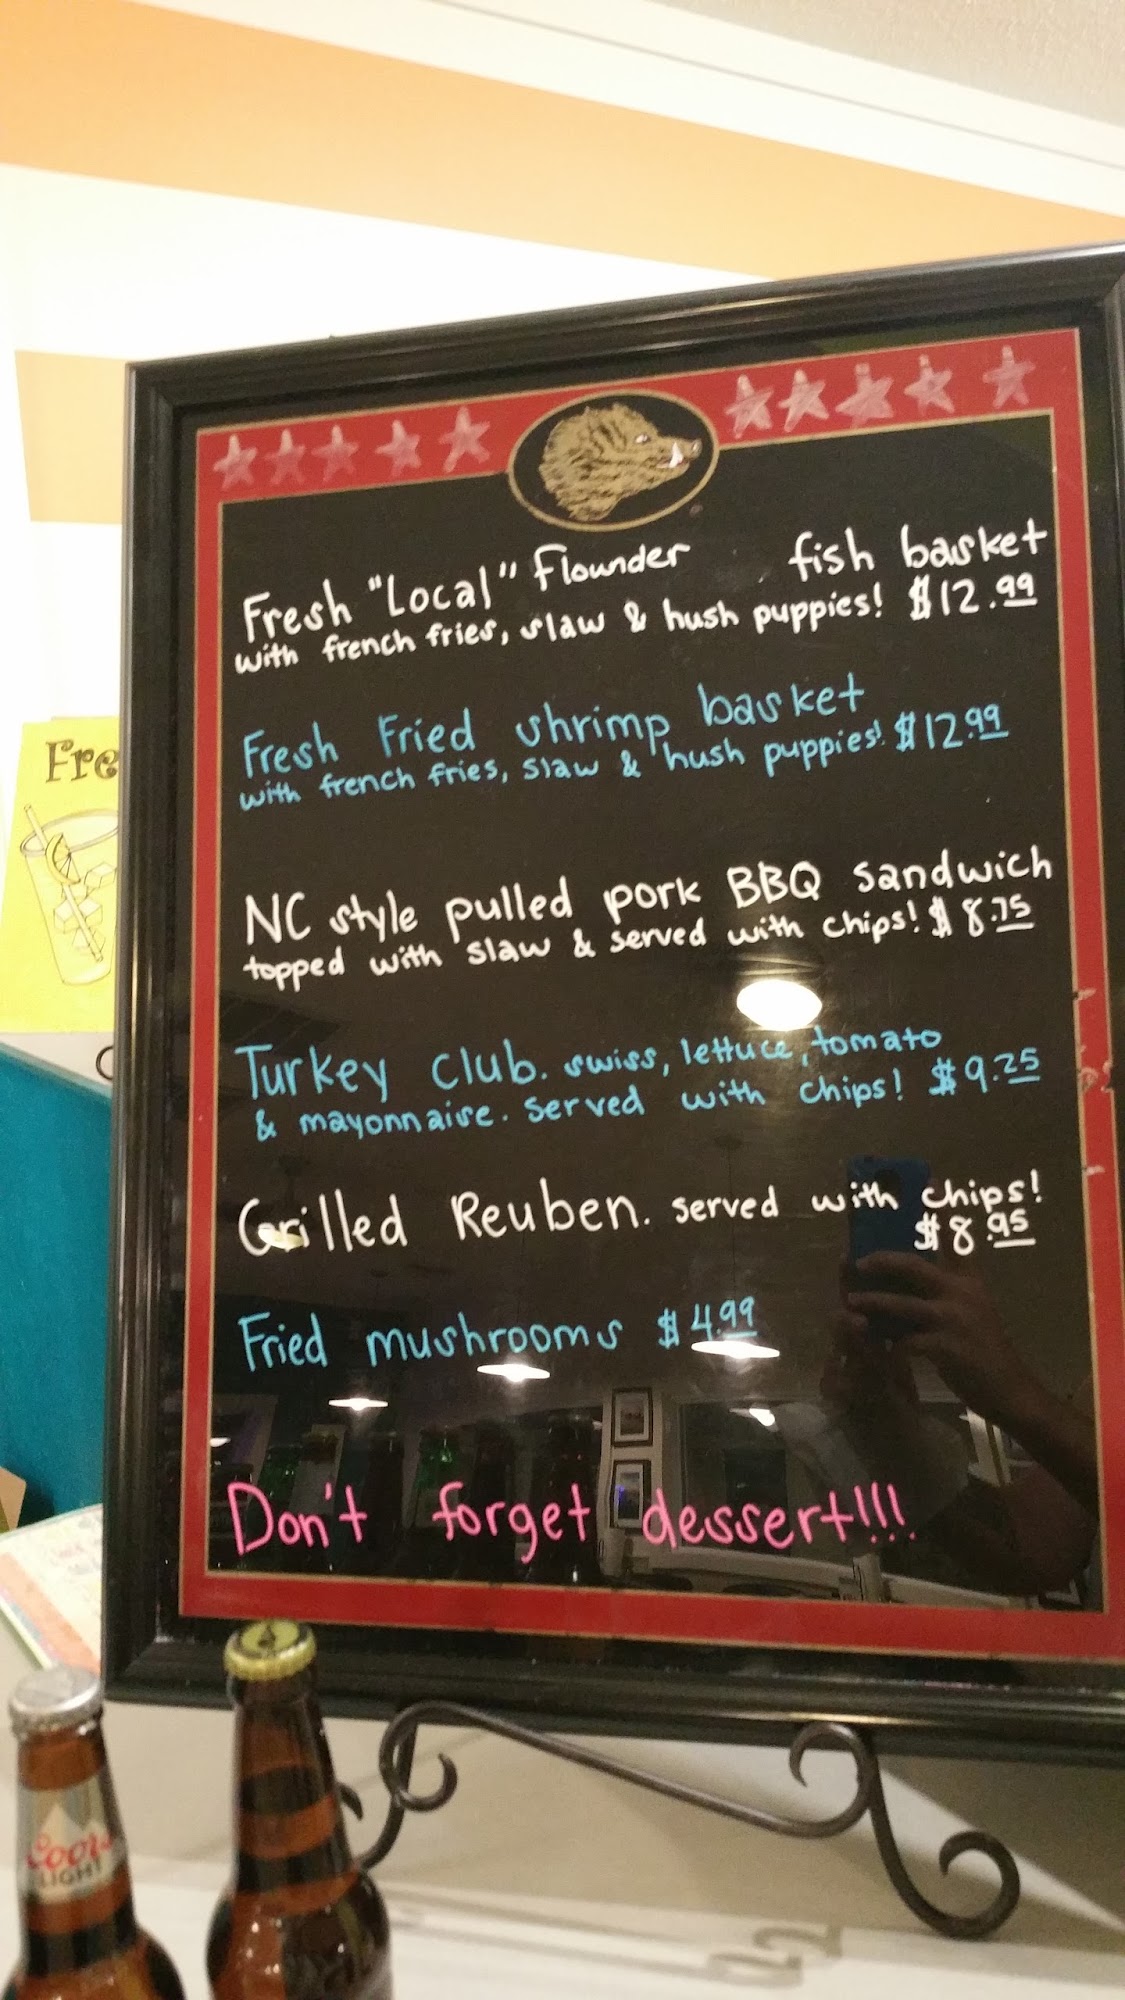 Fresh "Local" Flounder fish basket
with french fries, slaw & hush puppies! $12.99
Fresh Fried shrimp basket
with french fries, slaw & hush puppies! $12.99
NC style pulled pork BBQ sandwich
topped with slaw & served with chips! $8.75
Turkey Club. swiss, lettuce, tomato
& mayonnaise. served with chips! $9.25
Grilled Reuben. served with chips!
$8.95
Fried mushrooms $4.99
Don't forget dessert!!!
Fre
Coors
LIGHT